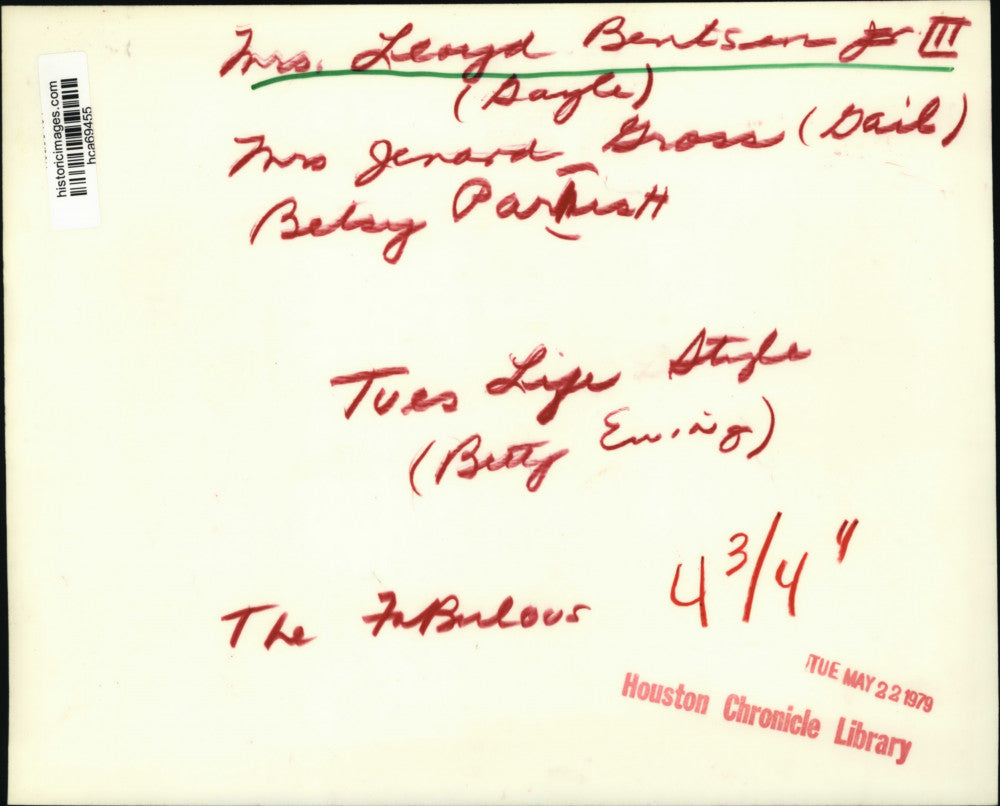 Mrs. Lloyd Bentsen Jr III
(Gayle)
Mrs Jenard Gross (Gail)
Betsy Parrish
Tues Life Style
(Betty Ewing)
4 3/4"
The FaBulous
TUE MAY 22 1979
Houston Chronicle Library
historicimages.com
hca69455